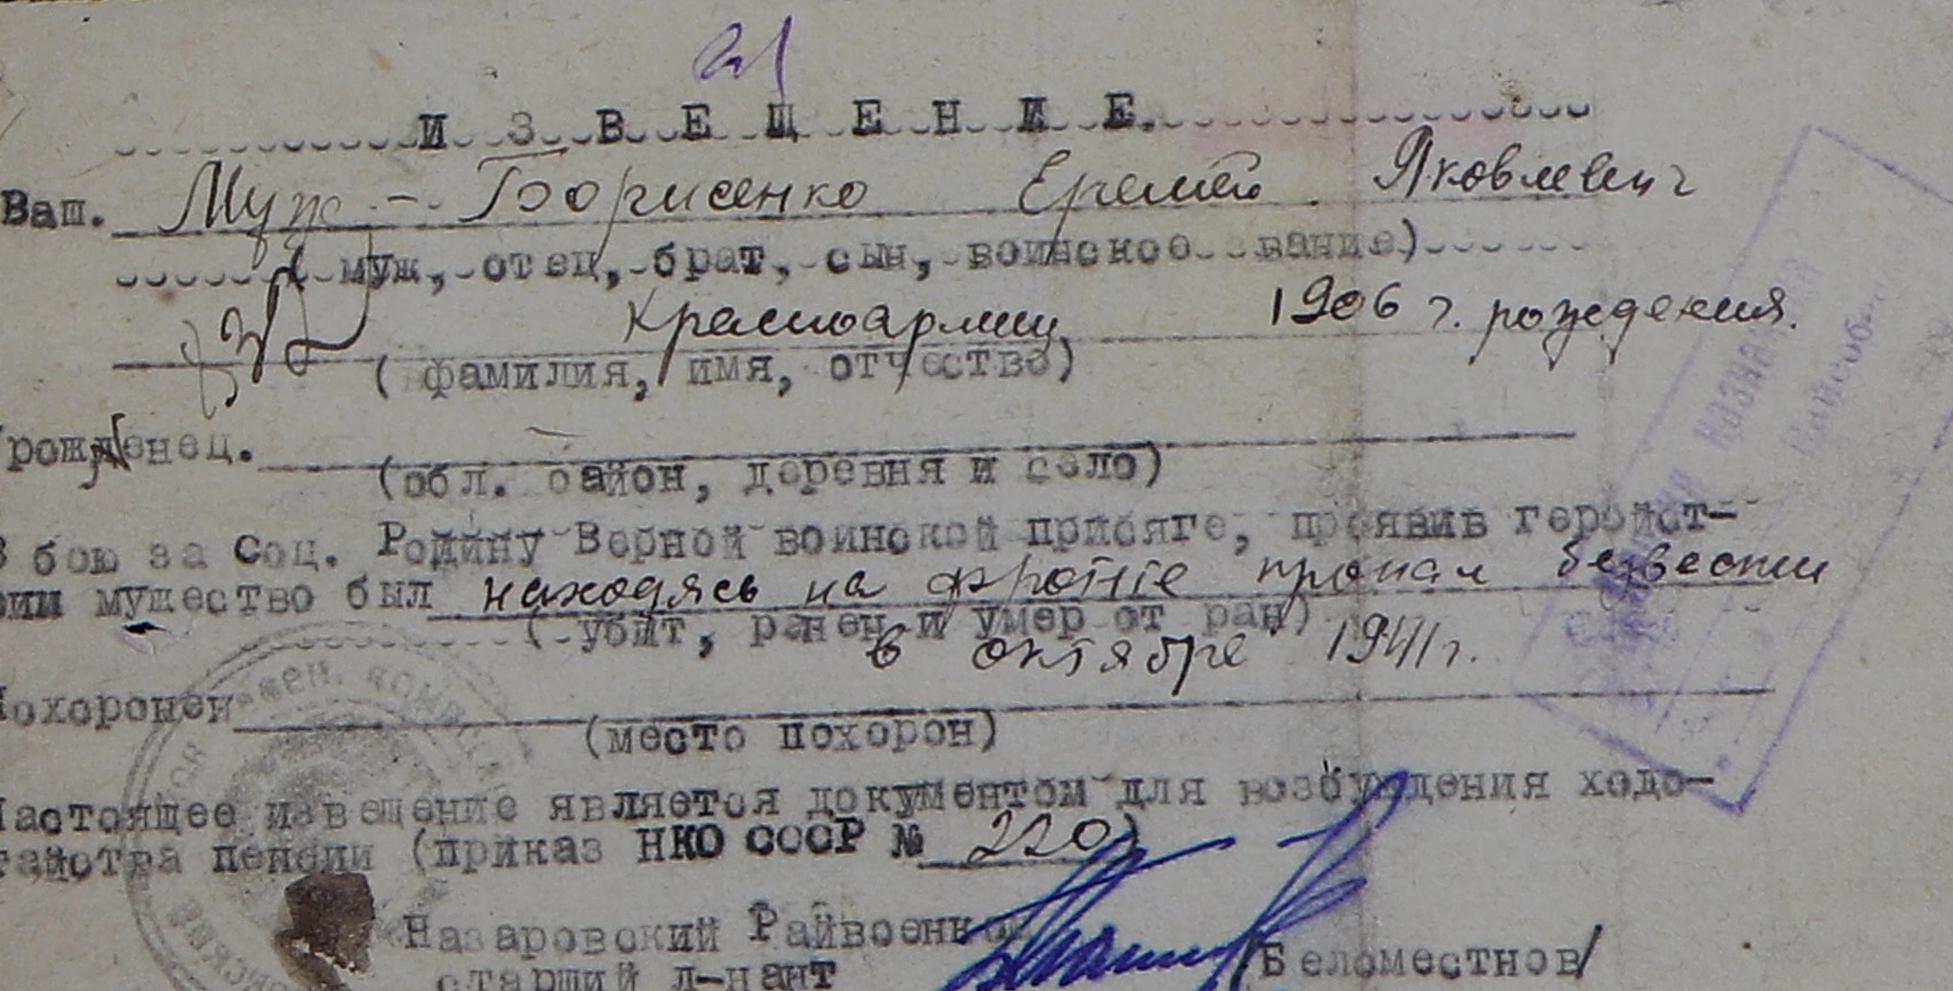 ИЗВЕЩЕНИЕ.
Ваш. Муж - Борисенко Еремей Яковлевич
( муж, отец, брат, сын, воинское звание)
Красноармеец 1906 г. рождения.
( фамилия, имя, отчество)
рожденец.
(обл. район, деревня и село)
В бою за Соц. Родину Верной воинской присяге, проявив геройст-
мужество был находясь на фронте пропал безвести
( убит, ранен и умер от ран)
в октябре 1941 г.
Похоронен
(место похорон)
Настоящее извещение является документом для возбуждения ходо-
тайства пенсии (приказ НКО СССР № 220)
Назаровский Райвоенком
старший л-нант /Беломестнов/